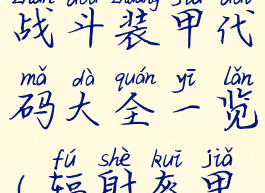 zhàn dòu zhuāng jiǎ dài
战斗装甲代
mǎ dà quán yī lǎn
码大全一览
fú shè kuī jiǎ
(辐射灰甲